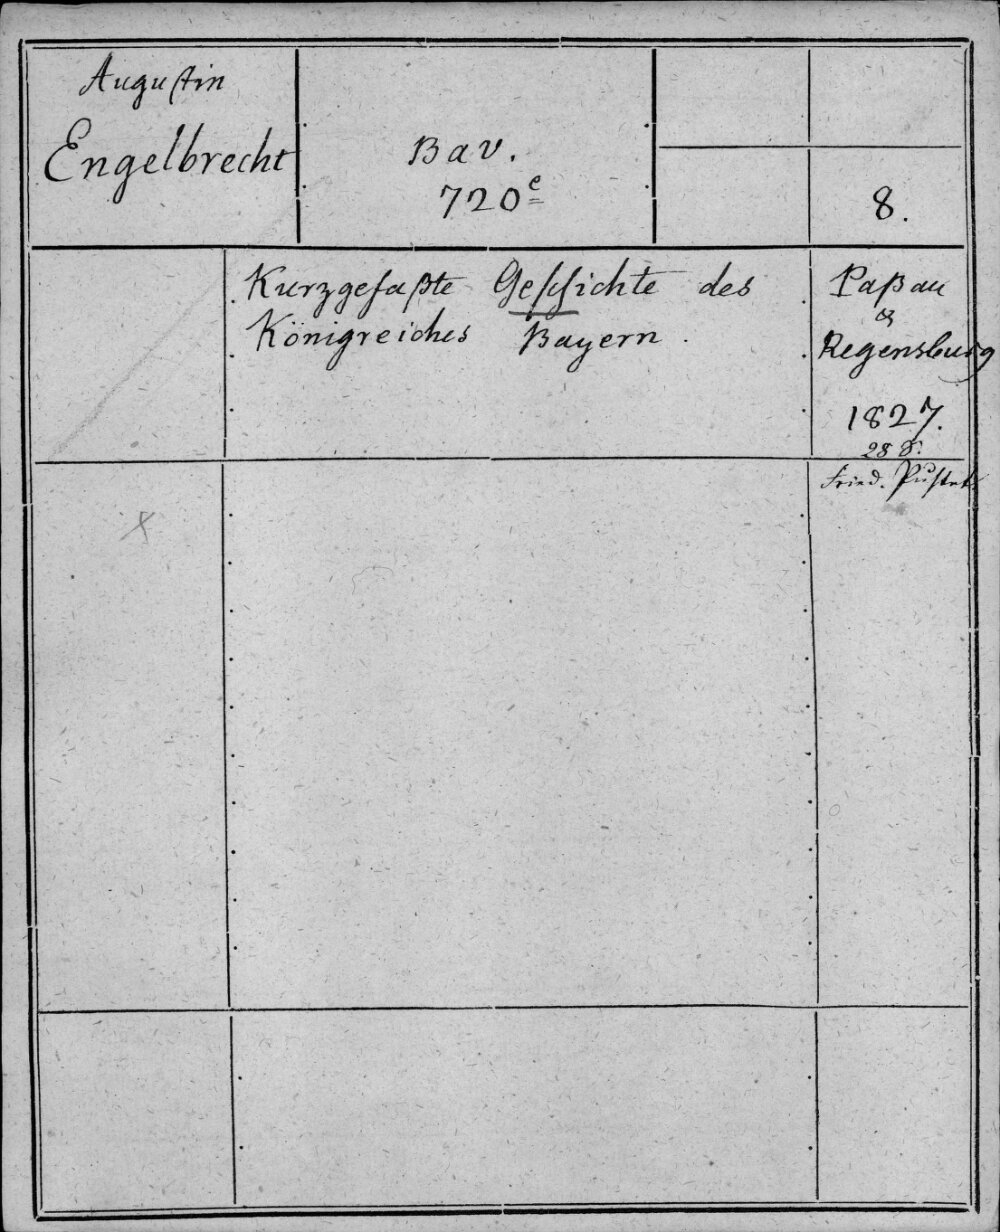 Augustin
Engelbrecht
Bav.
720e
8.
Kurzgefaßte Geschichte des
Königreiches Bayern.
Paßau
&
Regensburg
1827.
28 S.
Fried. Pustet